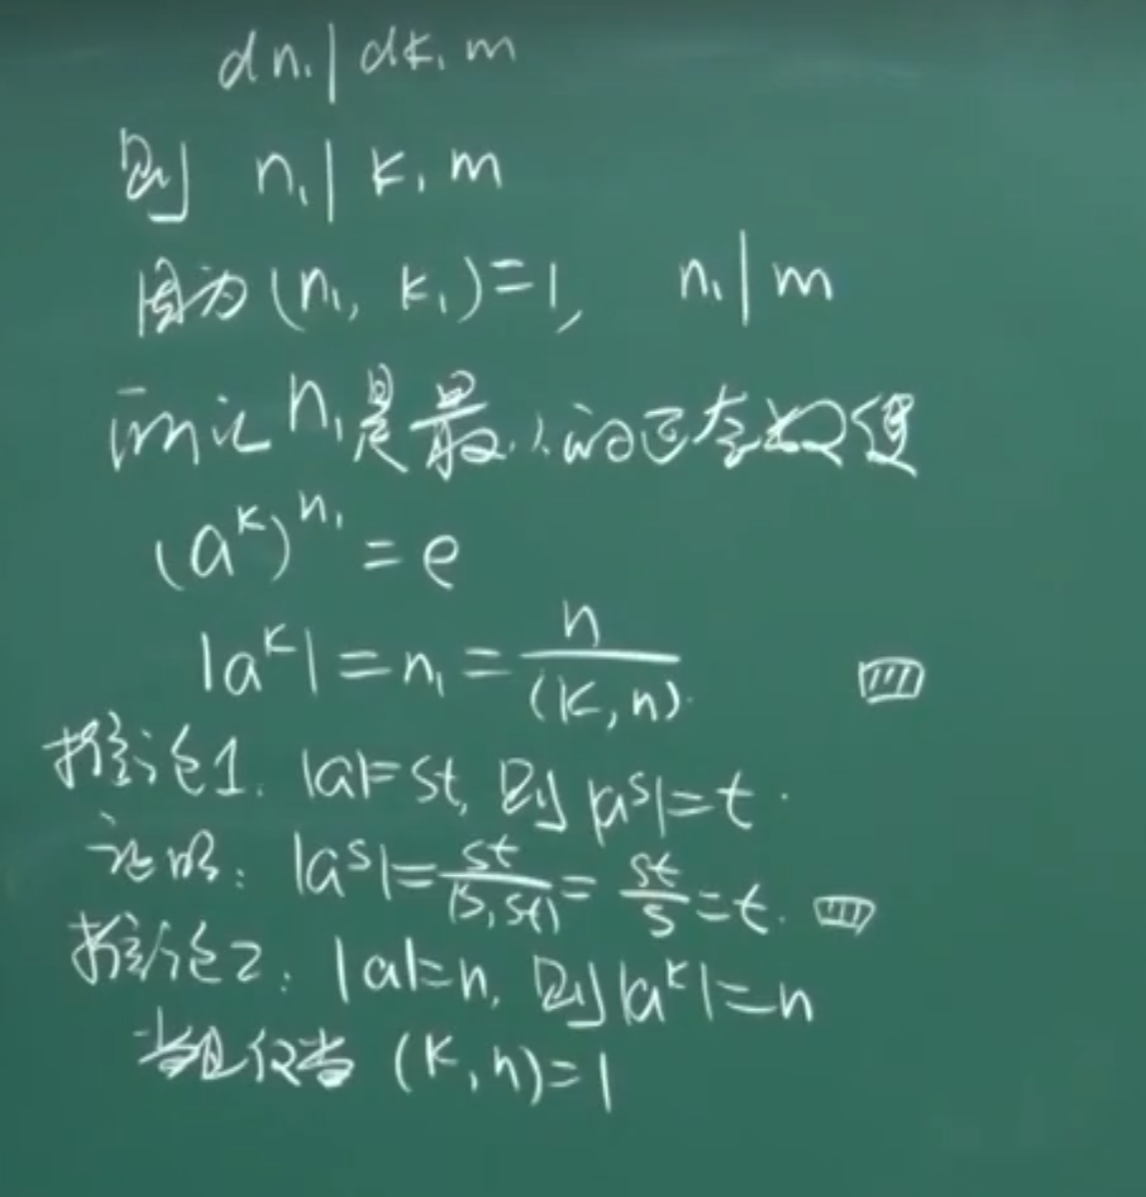 dn₁ | dk₁m
则 n₁ | k₁m
因为 (n₁, k₁)=1, n₁ | m
n₁是最小的正整数使
(aᵏ)ⁿ¹ = e
|aᵏ| = n₁ = n/(k,n).
推论1. |a|=st, 则 |aˢ|=t.
证明: |aˢ|= st/(s,st) = st/s = t.
推论2: |a|=n, 则|aᵏ|=n
当且仅当 (k,n)=1